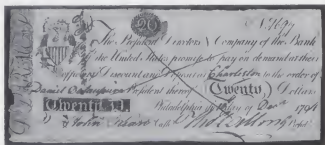 20 No 1697
The President Directors & Company of the Bank
of the United States promise to pay on demand at their
Office of Discount and Deposit at Charleston to the order of
Daniel President thereof Twenty Dollars
Philadelphia the day of
John Cash. Presidt.